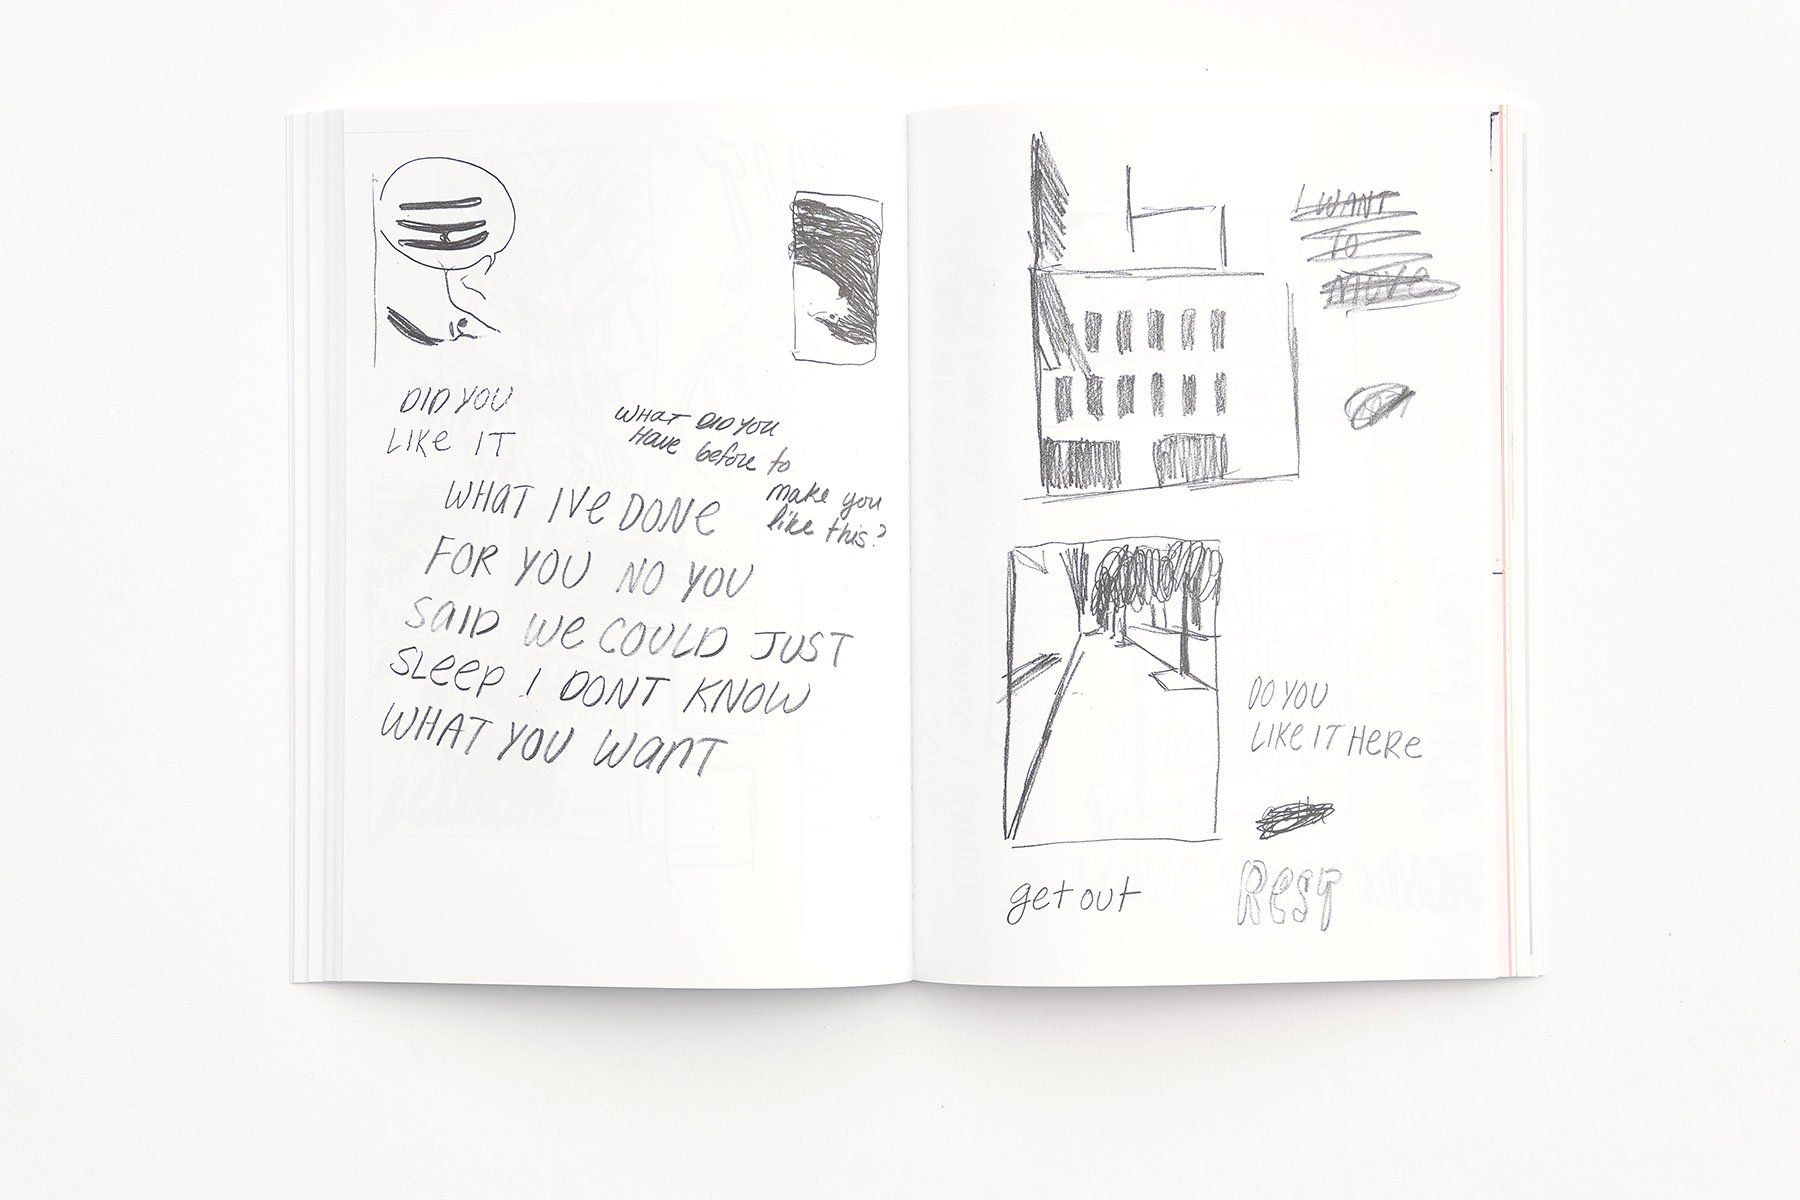 DID YOU
LIKE IT
WHAT DID YOU
Have before to
make you
like this?
WHaT IVe DONe
FOR YOU NO YOU
SaID We COULD JUST
SLeeP I DONT KNOW
WHAT YOU WanT
I WANT
TO
MOVe
DO YOU
LIKE IT HeRe
get out
ReST